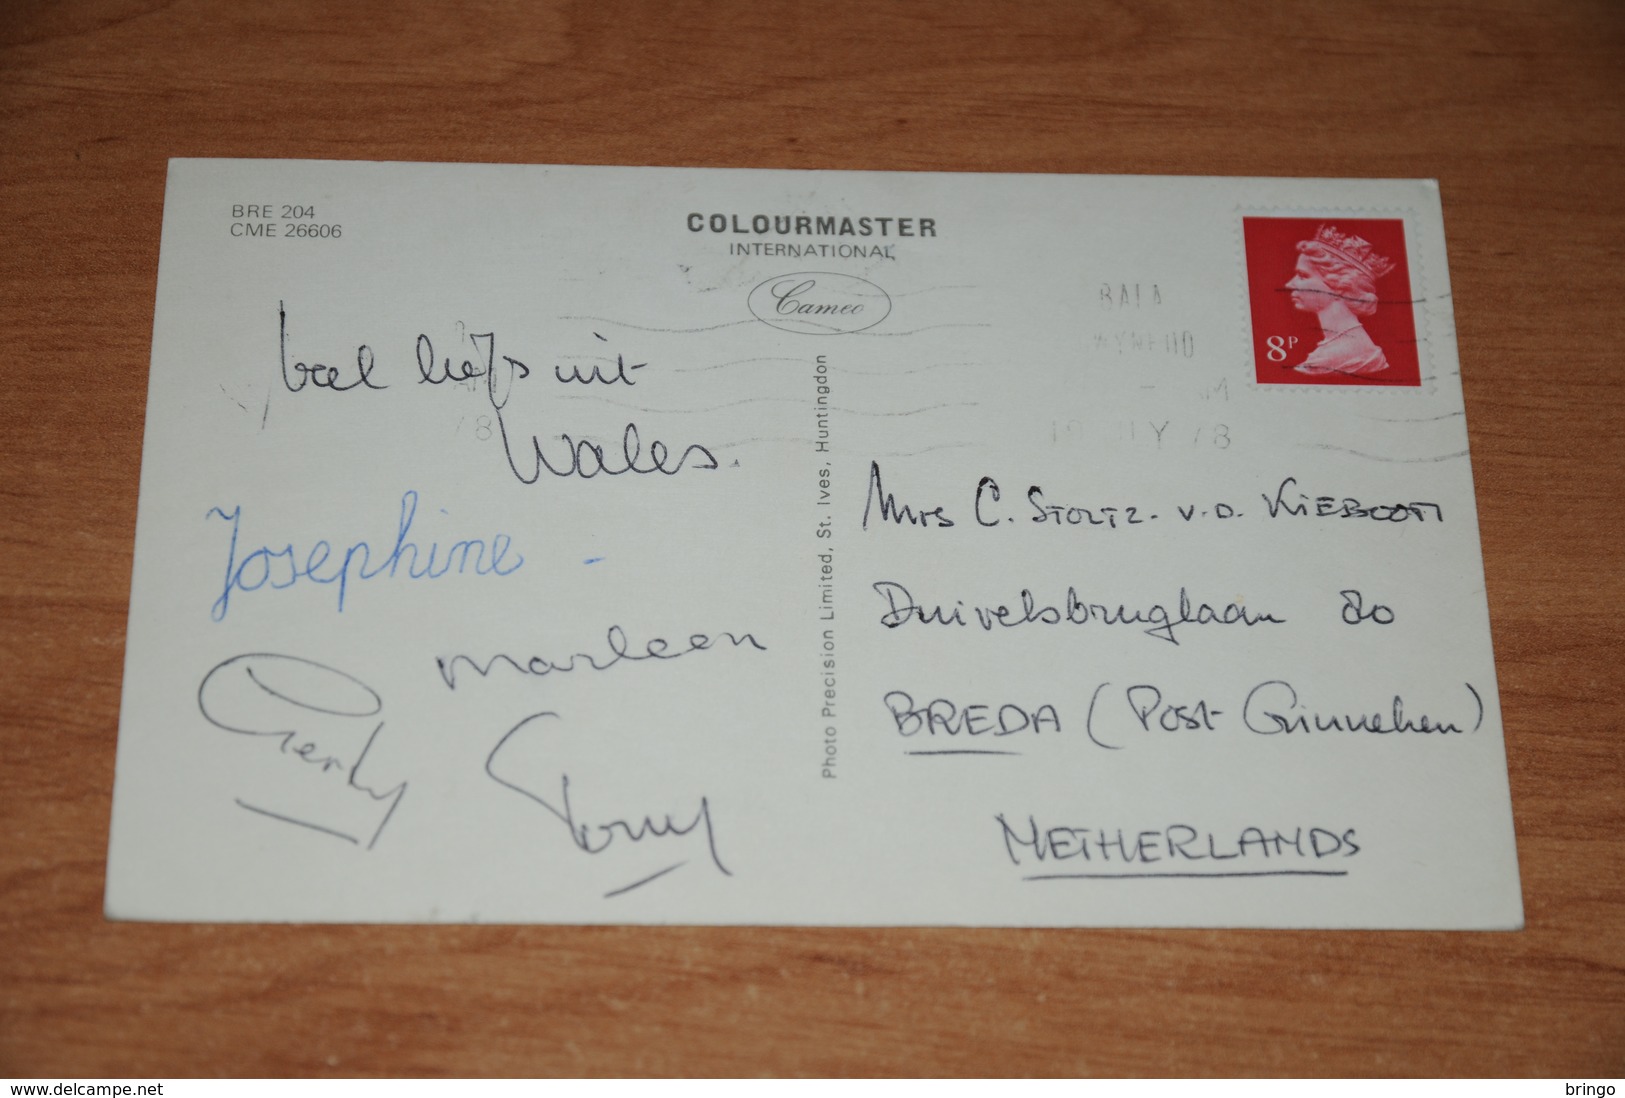 BRE 204
CME 26606
COLOURMASTER
INTERNATIONAL
Cameo
Veel liefs uit
Wales.
Josephine -
Marleen
Gerty
Tony
Photo Precision Limited, St. Ives, Huntingdon
BALA
GWYNEDD
AM
JLY 78
8P
Mrs C. STOLTZ. V.D. KIEBOOM
Duivelsbruglaan 80
BREDA (Post Ginneken)
NETHERLANDS
delcampe.net
bringo